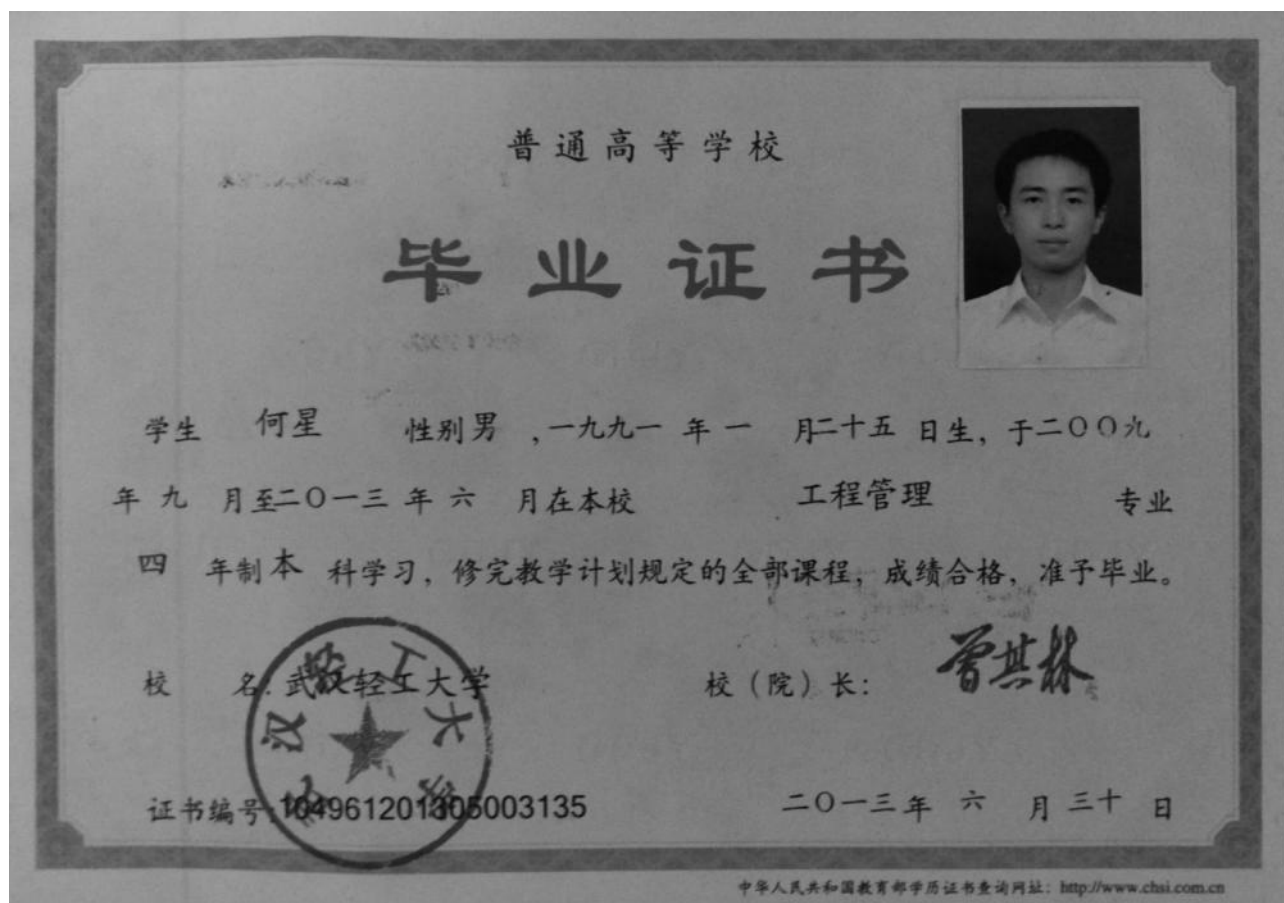 普通高等学校
毕业证书
学生 何星 性别男 ,一九九一 年 一 月二十五 日生, 于二〇〇九
年 九 月至二〇一三 年 六 月在本校 工程管理 专业
四 年制 本 科学习, 修完教学计划规定的全部课程, 成绩合格, 准予毕业。
校 名: 武汉轻工大学 校（院）长: 曾其林
武汉轻工大学
证书编号:104961201305003135 二〇一三年 六 月 三十 日
中华人民共和国教育部学历证书查询网址: http://www.chsi.com.cn